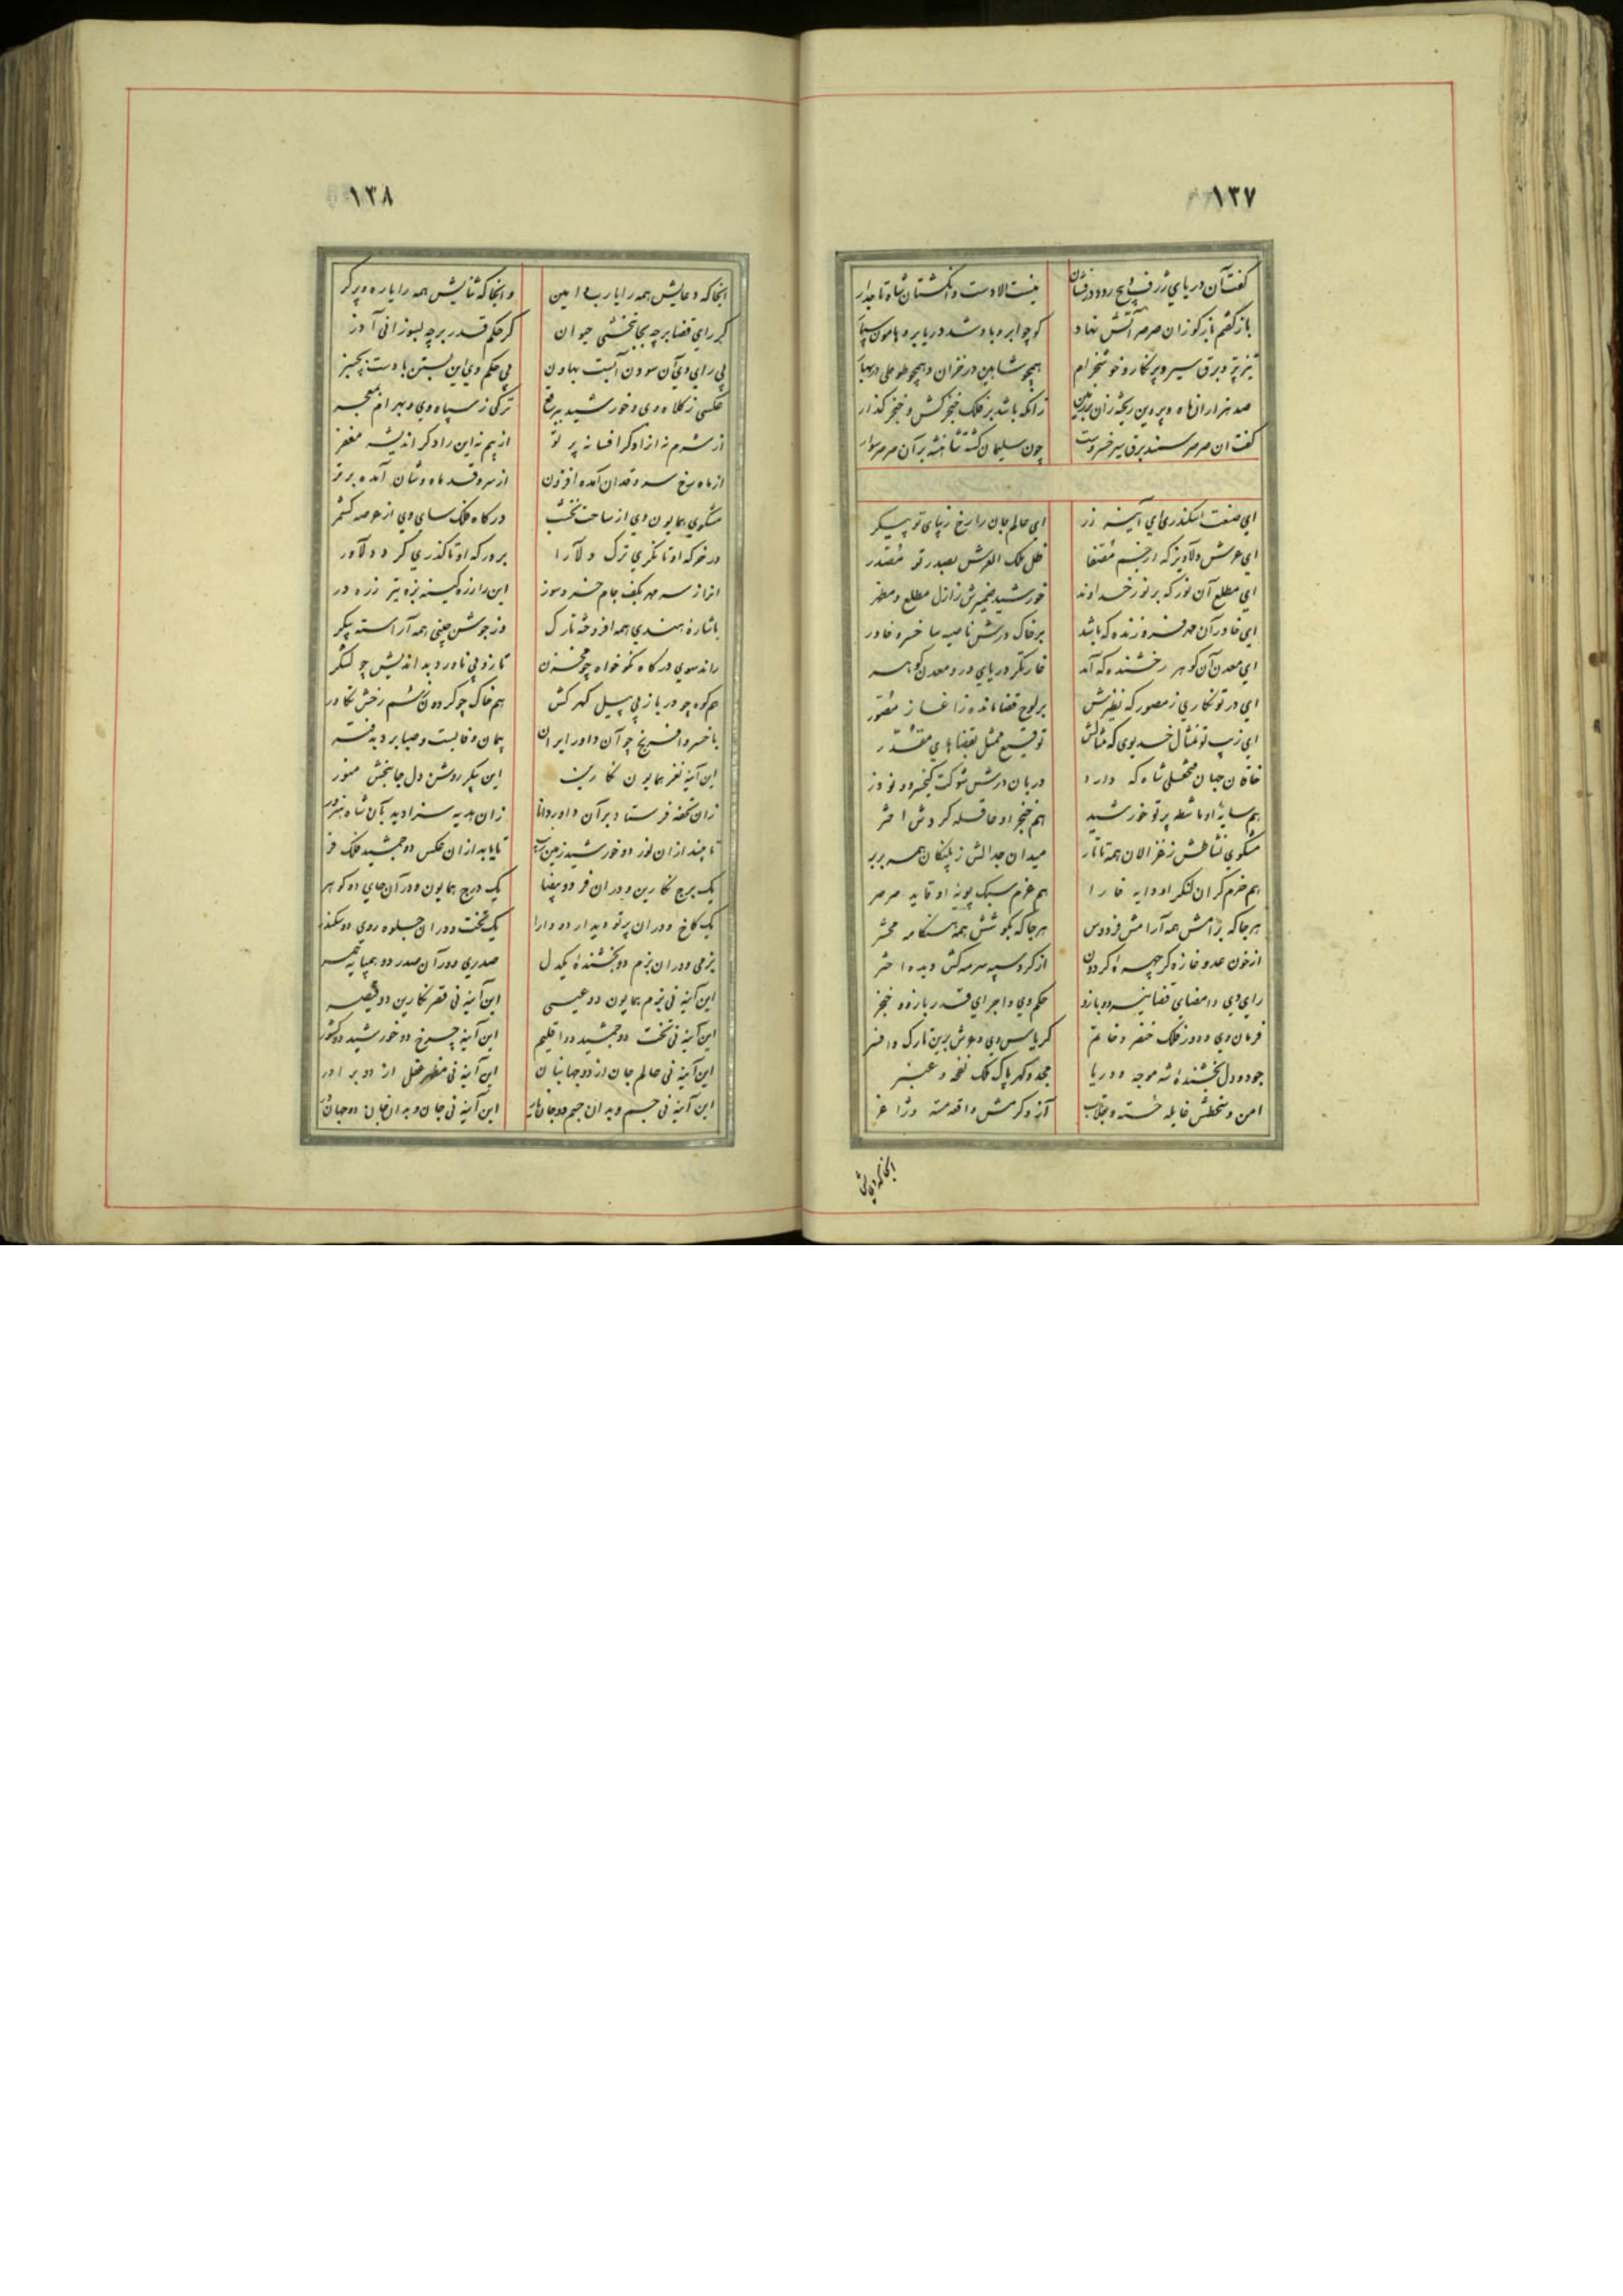 ١٣٧
گفت آن دریای ژرف و پنج رود درفشان
نیست الا دست و انگشتان شاه تاجدار
باز گفتم باز گو زان صرصر آتش نهاد
کو چو ابر و باد شد دریا بر و هامون سپار
تیز پر و برق سیر و پرنگار و خوشخرام
همچو شاهین در خزان و همچو طوطی در بهار
صد هزاران ماه و پروین ریخته زان بر زمین
زانکه باشد بر فلک خنجر کش و خنجر گذار
گفت ان صرصر سمند برق سیر خسروست
چون سلیمان گشته شاهنشه بر آن صرصر سوار
ای صنعت اسکندری ای آینه زر
ای عالم جان را رخ زیبای تو پیکر
ای عرش دلاویز که ار جسم
ظل ملک العرش بصدر تو مقتدر
ای مطلع آن نور که بر نور خداوند
خورشید ضمیرش ز ازل مطلع و مظهر
ای خاور آن مهر فروزنده که باشد
بر خاک درش ناصیه سا خسرو خاور
ای معدن آن گوهر رخشنده که آمد
خار نگر دریای در و معدن گوهر
ای در تو نگاری ز مصور که نظیرش
بر لوح قضا مانده ز اغاز مصور
ای زیب تو تمثال خدیوی که مثالش
توقیع ممثل بقضاهای مقدر
خاقان جهان فتحعلی شاه که دارد
دربان درش شوکت کیخسرو و نوذر
هم سایه او ماشطه پرتو خورشید
هم خنجر او فاصله گردش اختر
مشکوی نشاطش ز غزالان همه تاتار
میدان جدالش ز پلنگان همه بربر
هم حزم گران لنگر او دایه خارا
هم عزم سبک پویه او قاید صرصر
هر جا که برامش همه آرامش فردوس
هر جا که بکوشش همه هنگامه محشر
از خون عدو غازه گر چهره گردون
از گرد سپه سرمه کش دیده اختر
رای وی و امضای قضا نیرو و بازو
حکم وی و اجرای قدر بازو و خنجر
فرمان وی و دور فلک خنصر و خاتم
کریاس وی و عرش برین تارک و افسر
جود و دل بخشنده شه موجه و دریا
مجد و گهر پاک ملک نفحه و عنبر
امن و سخطش غایله خسته و جلاب
آز و کرمش واقعه مته و
انجا که دعایش
١٣٨
انجا که دعایش همه را یا رب و امین
و انجا که ثنایش همه را یاره و پرگر
گر رای قضا بر چه بجا بخشی حیوان
گر حکم قدر بر چه بسوزانی آذر
بی رای وی آن سودن آبست بهاون
بی حکم وی این بستن باد است بچنبر
عکسی ز کلاه وی و خورشید
ترکی ز سپاه وی و بهرام
از شرم نه ازاد گر افسانه پرتو
از بیم نه این راد گر اندیشه مغفر
از ماه رخ سرو قدان آمده افزون
از سرو قد ماه وشان آمده برتر
مشکوی همایون وی از ساحت نخشب
درگاه فلک سای وی از عرصه کشمر
در خرگه او تا نگری ترک دلارا
بر درگه او تا گذری گرد دلاور
انرا ز سر مهر بکف جام خرد سوز
این را ز ره کینه بزه تیر زره در
با شاره هندی همه افروخته تارک
وز جوشن چینی همه آراسته پیکر
راند سوی درگاه نکو خواه چو مخزن
تازد پی ناورد بد اندیش چو لشکر
هم کوه چو دریا ز پی پیل گهر کش
هم خاک چو گردون ز سم رخش تکاور
با خسرو افرنج چو آن داور ایران
پیمان وفا بست و صبا برد بدفتر
این آینه نغز همایون نگارین
این پیکر روشن دل جانبخش منور
زان تحفه فرستاد بر آن داور دانا
زان هدیه سزا دید بآن شاه هنرور
تا چند از ان نور دو خورشید زمین
تا یابد از ان عکس دو جمشید فلک فر
یک برج نگارین و دران فر دو بیضا
یک درج همایون و در آن جای دو گوهر
یک کاخ و دران پرتو دیدار دو دارا
یک تخت و دران جلوه روی دو سکندر
بزمی و دران بزم دو بخشنده یکدل
صدری و در آن صدر دو همپایه همسر
این آینه نی بزم همایون دو عیسی
این آینه نی قصر نگارین دو قیصر
این آینه نی تخت دو جمشید دو اقلیم
این آینه چرخ دو خورشید دو کشور
این آینه نی عالم جان از دو جهانبان
این آینه نی مظهر عقل از دو برادر
این آینه نی جسم و بدان جسم دو جان
این آینه نی جان و بدان جان دو جهان